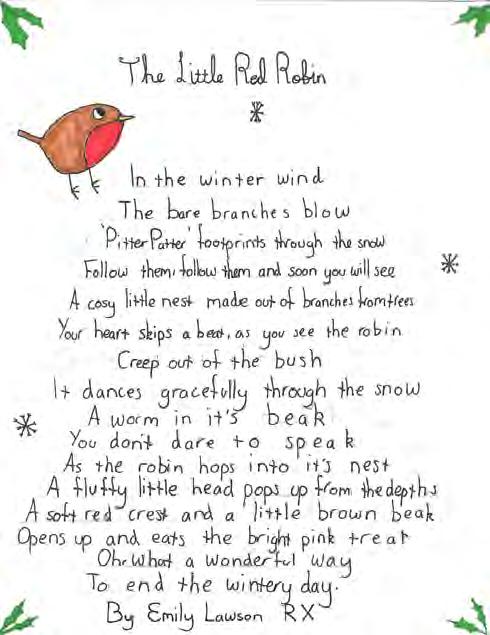 The Little Red Robin
In the winter wind
The bare branches blow
'Pitter Patter' footprints through the snow
Follow them, follow them and soon you will see
A cosy little nest made out of branches from trees
Your heart skips a beat, as you see the robin
Creep out of the bush
It dances gracefully through the snow
A worm in it's beak
You don't dare to speak
As the robin hops into it's nest
A fluffy little head pops up from the depths
A soft red crest and a little brown beak
Opens up and eats the bright pink treat
Oh, what a wonderful way
To end the wintery day.
By Emily Lawson RX